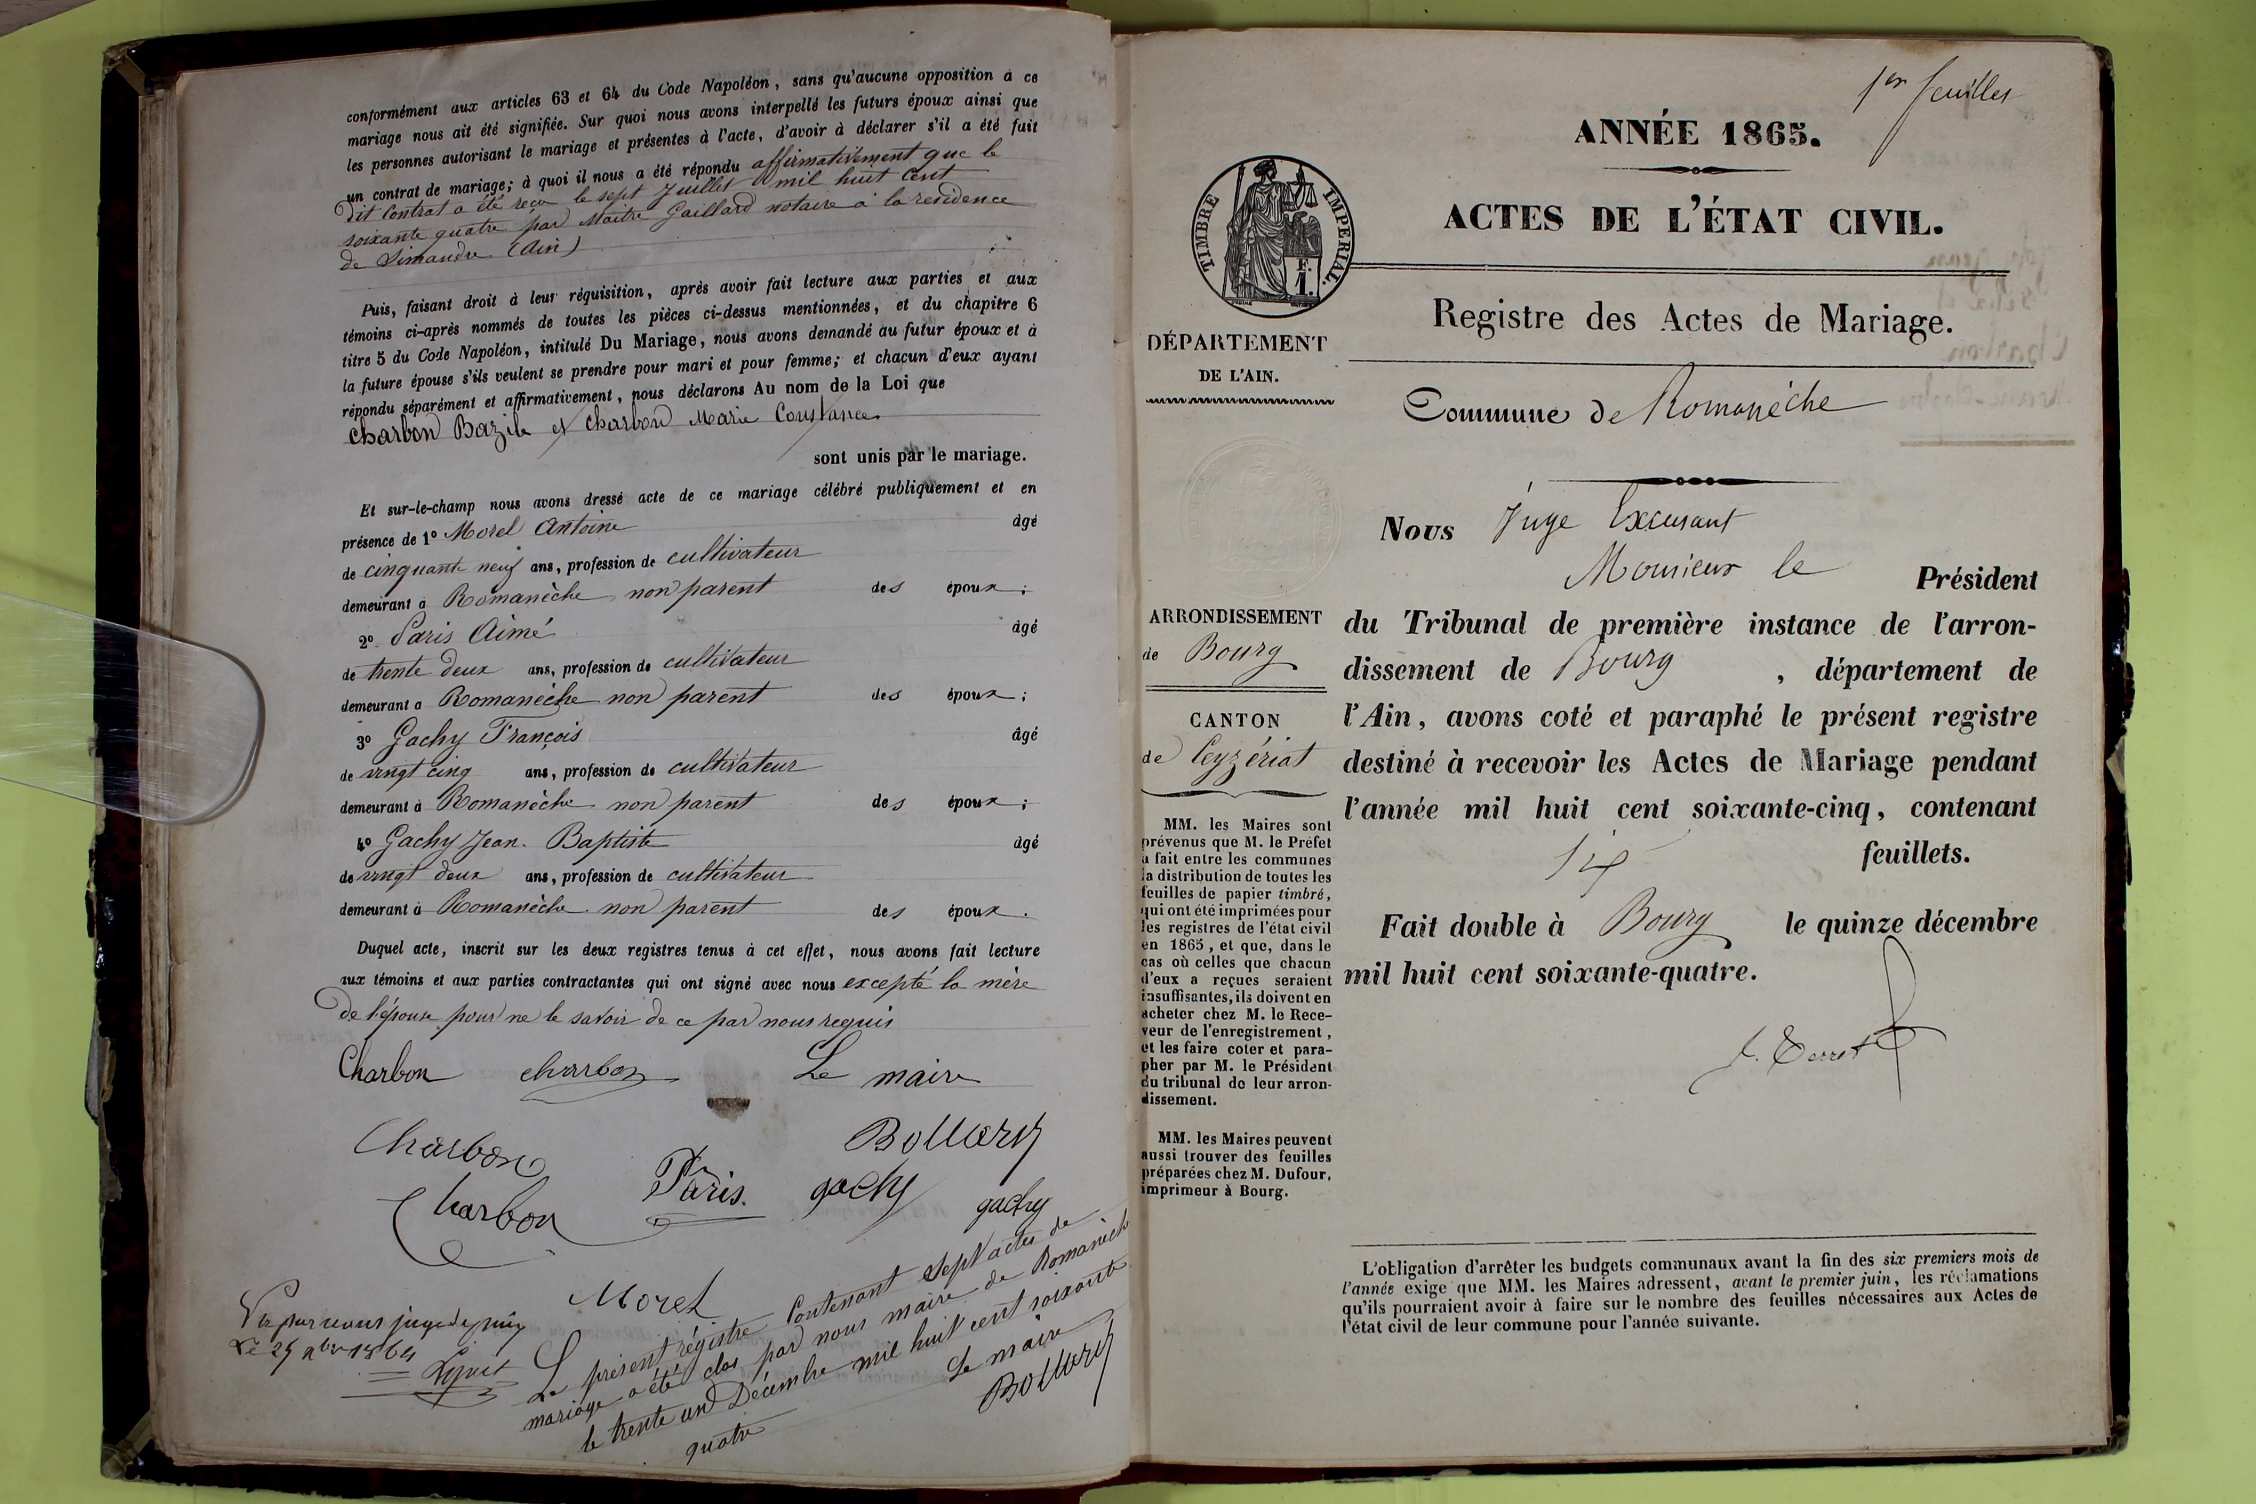 conformément aux articles 63 et 64 du Code Napoléon, sans qu'aucune opposition à ce
mariage nous ait été signifiée. Sur quoi nous avons interpellé les futurs époux ainsi que
les personnes autorisant le mariage et présentes à l'acte, d'avoir à déclarer s'il a été fait
un contrat de mariage; à quoi il nous a été répondu affirmativement que le
dit Contrat a été reçu le sept Juillet mil huit cent
soixante quatre par Maitre Gaillard notaire à la residence
de Simandre (Ain)
Puis, faisant droit à leur réquisition, après avoir fait lecture aux parties et aux
témoins ci-après nommés de toutes les pièces ci-dessus mentionnées, et du chapitre 6
titre 5 du Code Napoléon, intitulé Du Mariage, nous avons demandé au futur époux et à
la future épouse s'ils veulent se prendre pour mari et pour femme; et chacun d'eux ayant
répondu séparément et affirmativement, nous déclarons Au nom de la Loi que
Charbon Bazile et Charbon Marie Constance
sont unis par le mariage.
Et sur-le-champ nous avons dressé acte de ce mariage célébré publiquement et en
présence de 1º Morel Antoine âgé
de cinquante neuf ans, profession de cultivateur
demeurant à Romanèche non parent des époux;
2º Paris Aimé âgé
de trente deux ans, profession de cultivateur
demeurant à Romanèche non parent des époux;
3º Gachy François âgé
de vingt cinq ans, profession de cultivateur
demeurant à Romanèche non parent des époux;
4º Gachy Jean Baptiste âgé
de vingt deux ans, profession de cultivateur
demeurant à Romanèche non parent des époux.
Duquel acte, inscrit sur les deux registres tenus à cet effet, nous avons fait lecture
aux témoins et aux parties contractantes qui ont signé avec nous excepté la mère
de l'épouse pour ne le savoir de ce par nous requis
Charbon charbon Le maire
Charbon Bollary
Charbon Paris. gachy gachy
Morel
Vu par nous juge de paix
Le 25 9bre 1864
Le présent régistre Contenant sept actes de
mariage a été clos par nous maire de Romanèche
le trente un Décembre mil huit cent soixante
quatre
Le maire
Bollary
1er feuillet
ANNÉE 1865.
ACTES DE L'ÉTAT CIVIL.
TIMBRE IMPÉRIAL.
F.
1.
Registre des Actes de Mariage.
DÉPARTEMENT
DE L'AIN.
Commune de Romanèche
Nous Juge Excusant
Monsieur le Président
du Tribunal de première instance de l'arron-
dissement de Bourg, département de
l'Ain, avons coté et paraphé le présent registre
destiné à recevoir les Actes de Mariage pendant
l'année mil huit cent soixante-cinq, contenant
six feuillets.
Fait double à Bourg le quinze décembre
mil huit cent soixante-quatre.
ARRONDISSEMENT
de Bourg
CANTON
de Ceyzériat
MM. les Maires sont
prévenus que M. le Préfet
a fait entre les communes
la distribution de toutes les
feuilles de papier timbré,
qui ont été imprimées pour
les registres de l'état civil
en 1865, et que, dans le
cas où celles que chacun
d'eux a reçues seraient
insuffisantes, ils doivent en
acheter chez M. le Rece-
veur de l'enregistrement,
et les faire coter et para-
pher par M. le Président
du tribunal de leur arron-
dissement.
MM. les Maires peuvent
aussi trouver des feuilles
préparées chez M. Dufour,
imprimeur à Bourg.
L'obligation d'arrêter les budgets communaux avant la fin des six premiers mois de
l'année exige que MM. les Maires adressent, avant le premier juin, les réclamations
qu'ils pourraient avoir à faire sur le nombre des feuilles nécessaires aux Actes de
l'état civil de leur commune pour l'année suivante.